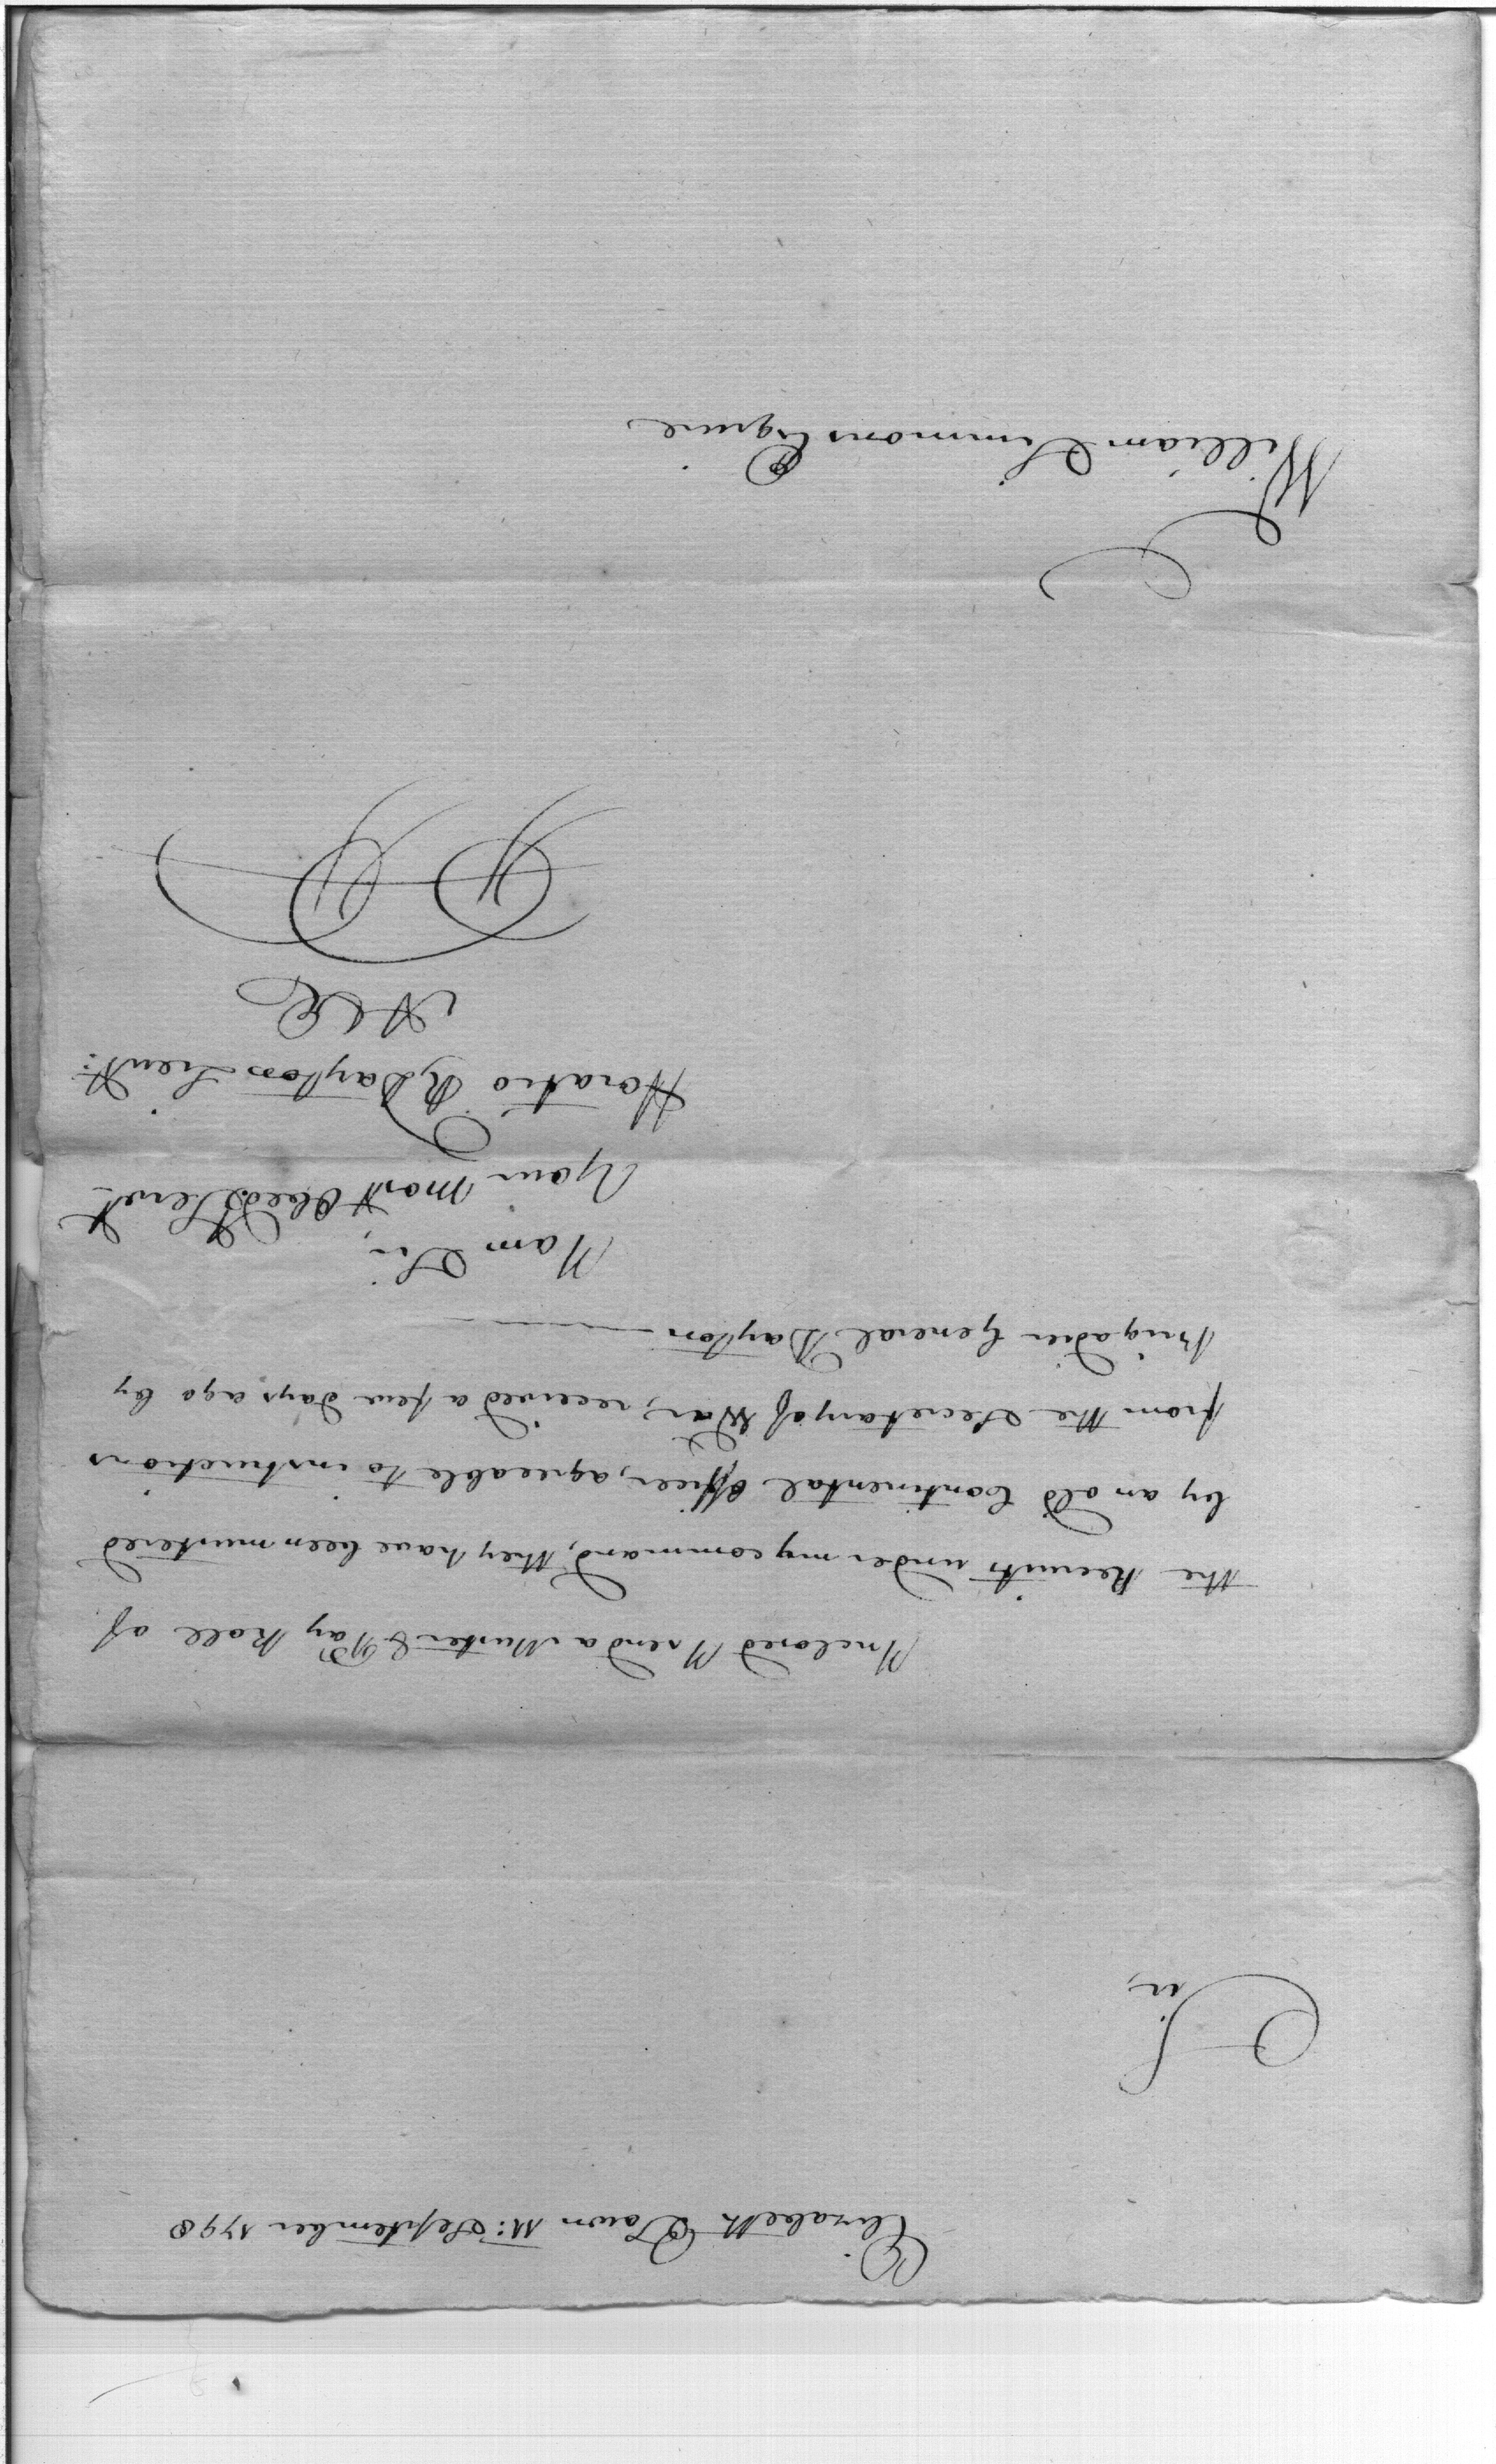 Elizabeth Town 11: September 1798
Sir,
Inclosed I send a Muster & Pay Roll of
the Recruits under my command, they have been mustered
by an old Continental Officer, agreeable to instructions
from the Secretary of War, received a few days ago by
Brigadier General Dayton
I am Sir,
Your most Obed. Servt
Horatio R Dayton Lieut:
William Simmons Esquire